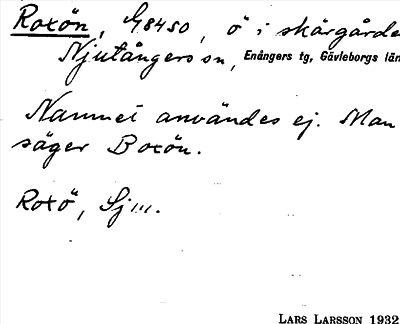 Roxön, G8450, ö i skärgårde
Njutångers sn, Enångers tg, Gävleborgs län
Namnet användes ej. Man
säger Boxön.
Roxö, Sj.
LARS LARSSON 1932